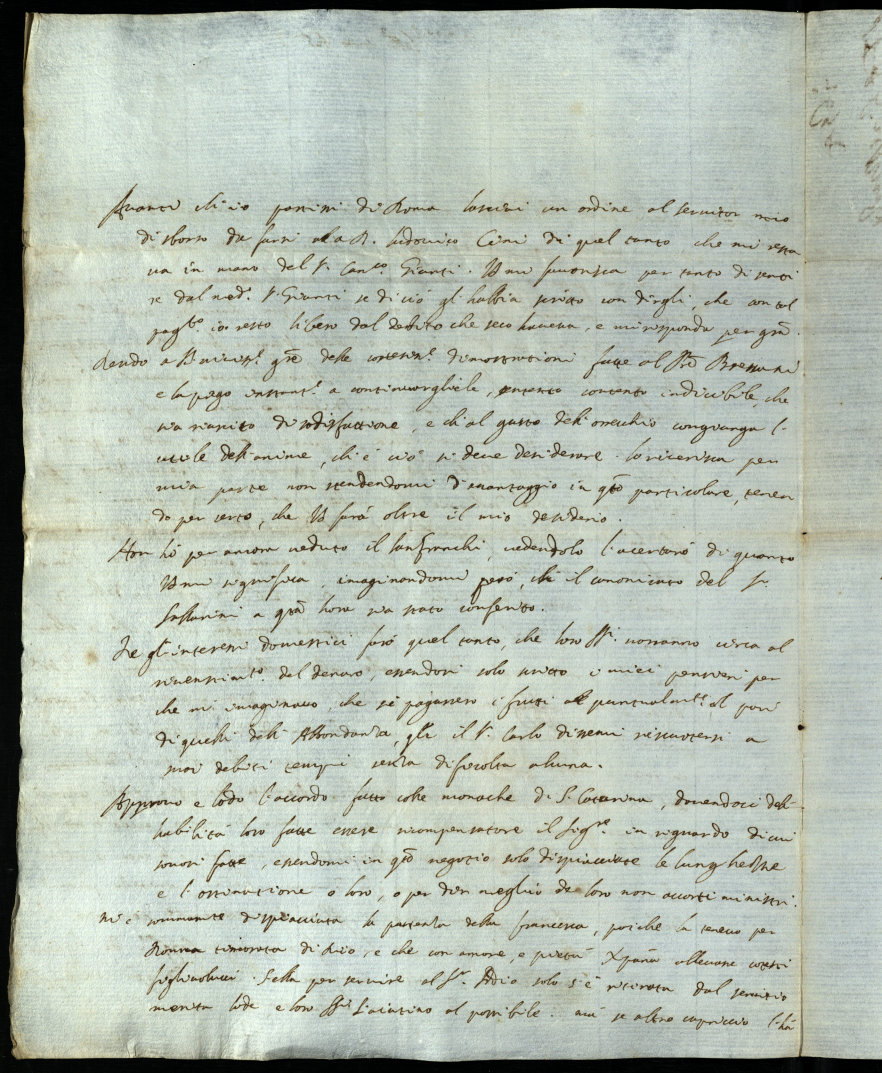 Avanti ch'io partissi di Roma lasciai un ordine al servitor mio
di sborso da farsi al R. Ludovico Cini di quel tanto che mi resta
va in mano del Sr. Canco. Giunti. V mi favorisca per tanto di senti
re dal med. Sr. Giunti se di ciò gl'habbia scritto con dirgli, che con tal
pagto. io resto libero dal debito che seco haveva, e mi risponda per gra.
Rendo a V gre delle cortesissme. dimostrationi fatte al Pre
e la prego a continuargliele, contento indicibile, che
sia riuscito di sodisfattione, e ch'al gusto dell'orecchio congiunga l'
utile dell'anime, ch'è ciò si deve desiderare. lo riverisca per
mia parte non stendendomi d'avantaggio in qto particolare, tenen
do per certo, che V farà oltre il mio desiderio.
Non hò per ancora veduto il Lanfranchi, vedendolo l'accertarò di quanto
V mi significa, imaginandomi però, ch' il canonicato del Sr.
a qta hora sia stato conferito.
Ne gl'interessi domestici farò quel tanto, che loro SSri. vorranno circa al
del denaro, essendosi solo scritto i miei pensieri per
che mi imaginavo, che si pagassero i frutti puntualmte, al pari
di quelli dell'Abbondanza, il Sr. Carlo riscuotersi a
suoi debiti tempi senza dificoltà alcuna.
Approvo e lodo l'accordo fatto colle monache di S. Caterina, dovendoci dell'
habilità loro fatte essere ricompensatore il Sigre. in riguardo di cui
sonosi fatte, essendomi in qto negotio solo dispiaciute le lunghezze
e l'ostinatione o loro, o per dir meglio de loro non accorti ministri.
Mi è sommamte dispiaciuta la partenza della Francesca, poiche la tenevo per
Donna timorata di Dio, e che con amore, e pietà Xpiana allevasse cotesti
figliolucci. S'ella per servire al Sr. Iddio solo s'è ritirata dal servitio
merita lode e loro SSri l'aiutino al possibile. mà se altro capriccio l'hà